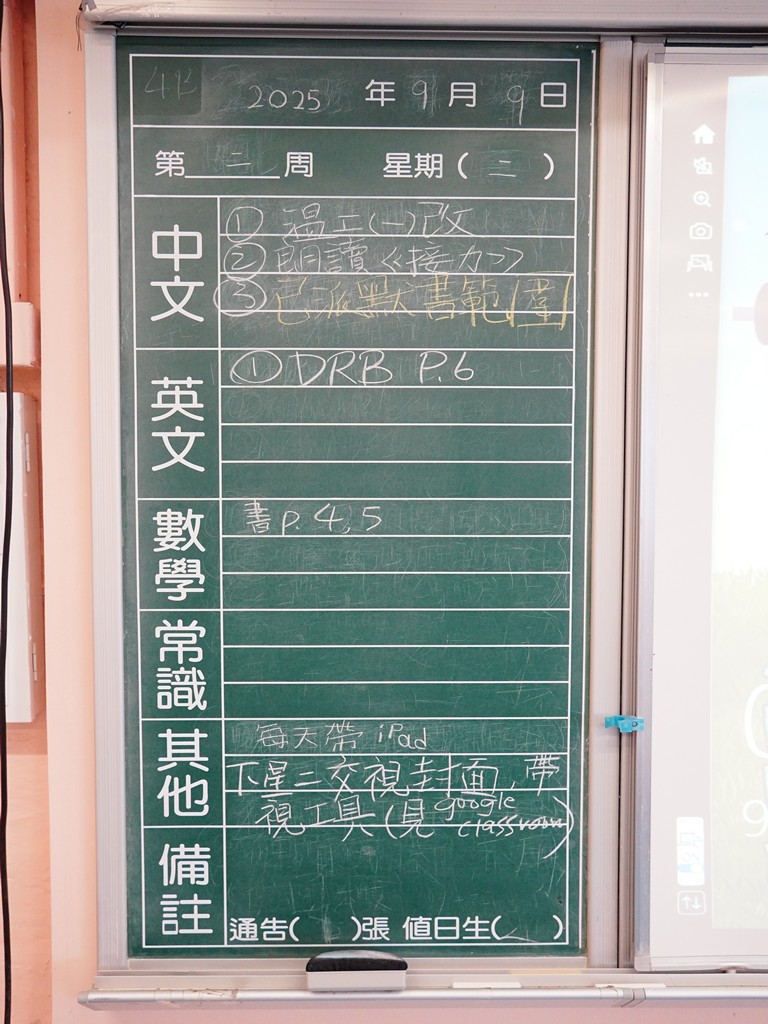 2025 年 9 月 9 日
第 二 周 星期 ( 二 )
中文
① 溫工(一)改
② 朗讀《接力》
③ 已派默書範圍
英文
① DRB P.6
數學
書 p. 4, 5
常識
其他
每天帶 iPad
下星二交視封面, 帶
視工具 (見 google classroom)
備註
通告( )張 值日生( )